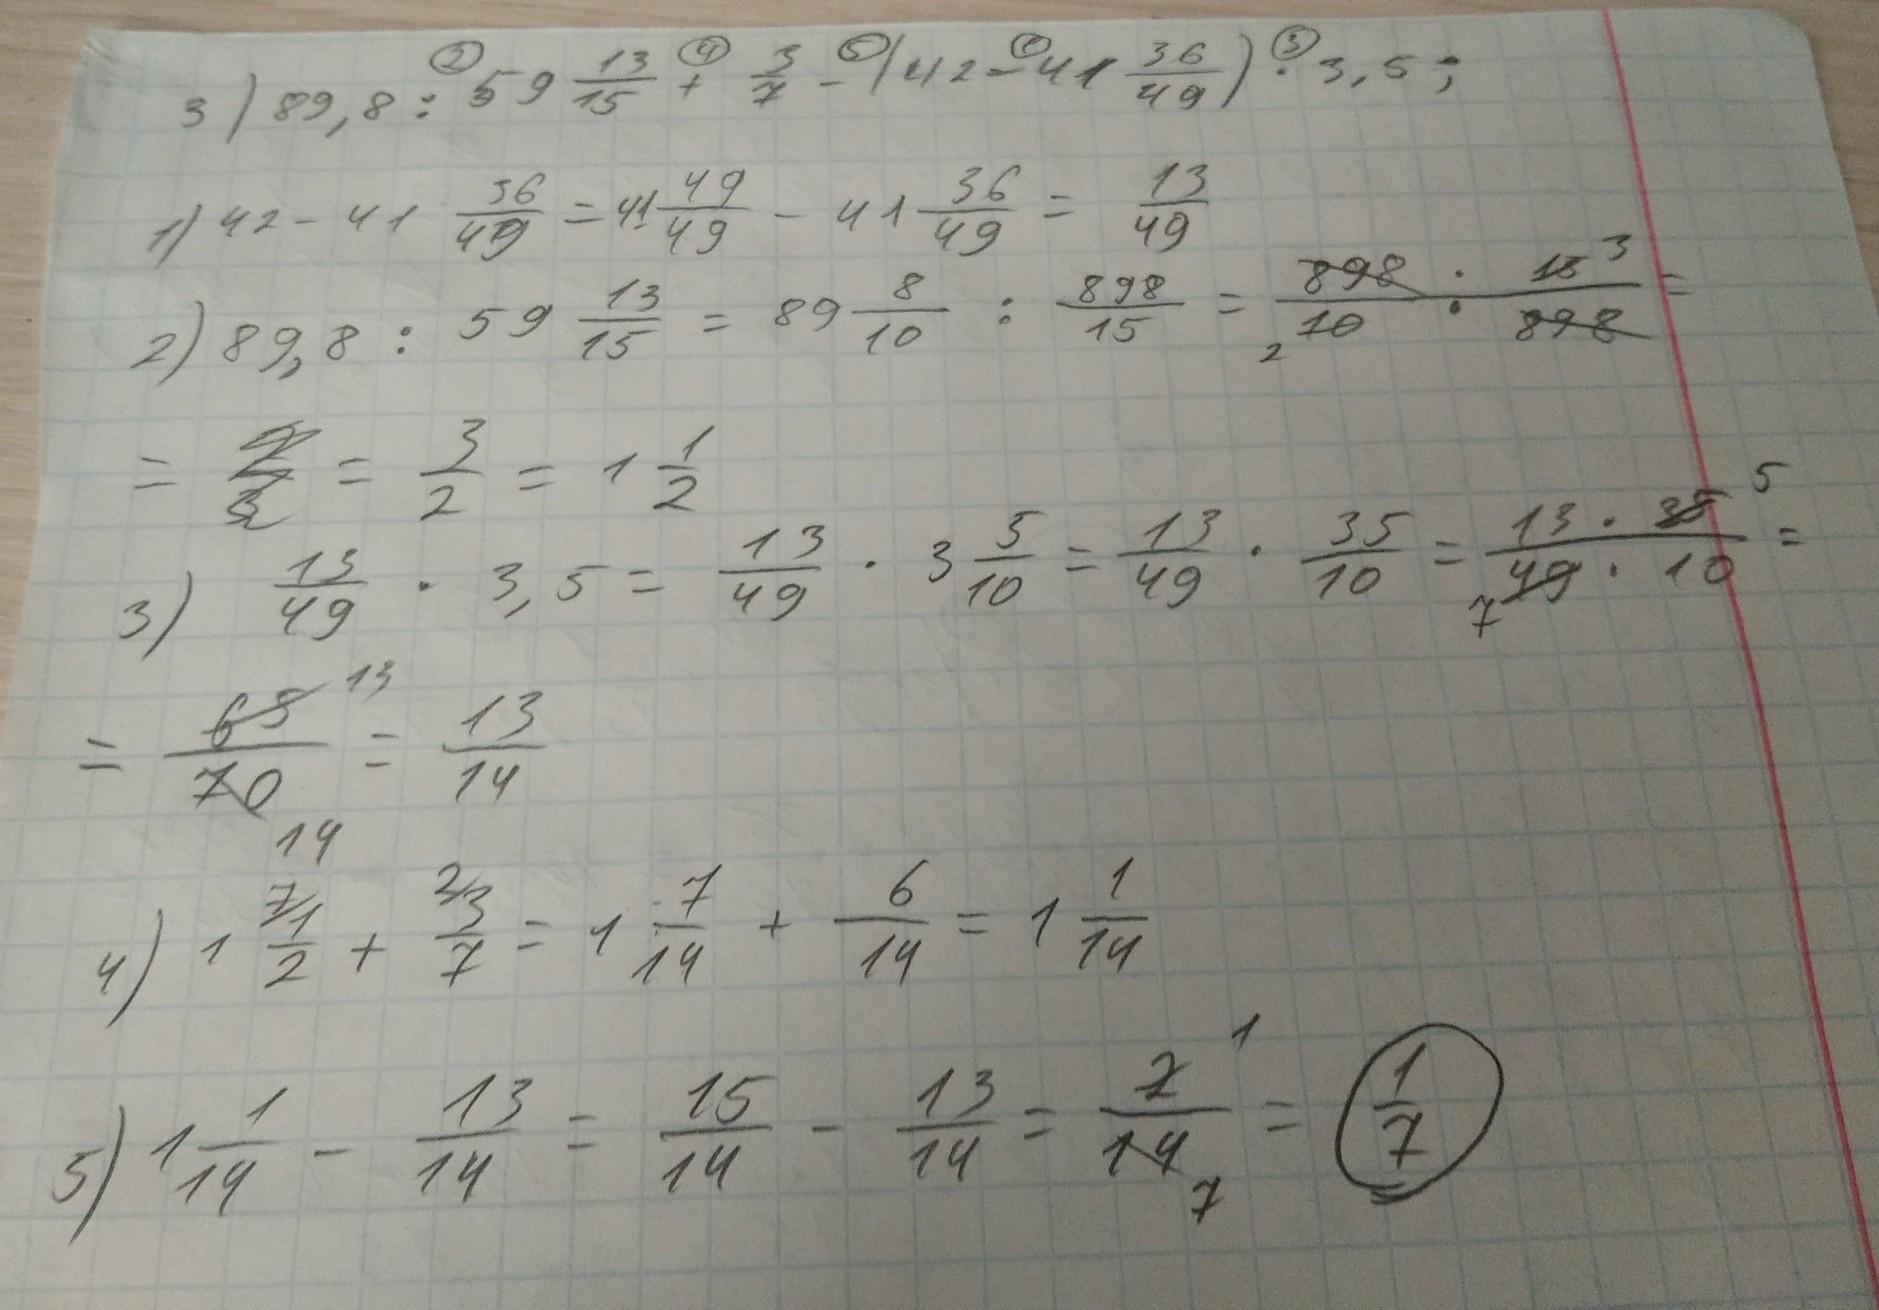 3) 89,8 : 59 13/15 + 3/7 - (42 - 41 36/49) · 3,5 ;
② ④ ⑤ ① ③
1) 42 - 41 36/49 = 41 49/49 - 41 36/49 = 13/49
2) 89,8 : 59 13/15 = 89 8/10 : 898/15 = 898 · 15 3 / 2 10 · 898 =
= 3/2 = 1 1/2
3) 13/49 · 3,5 = 13/49 · 3 5/10 = 13/49 · 35/10 = 13 · 35 5 / 7 49 · 10 =
= 65 13 / 70 14 = 13/14
4) 1 7 1/2 + 2 3/7 = 1 7/14 + 6/14 = 1 1/14
5) 1 1/14 - 13/14 = 15/14 - 13/14 = 2 1 / 14 7 = 1/7